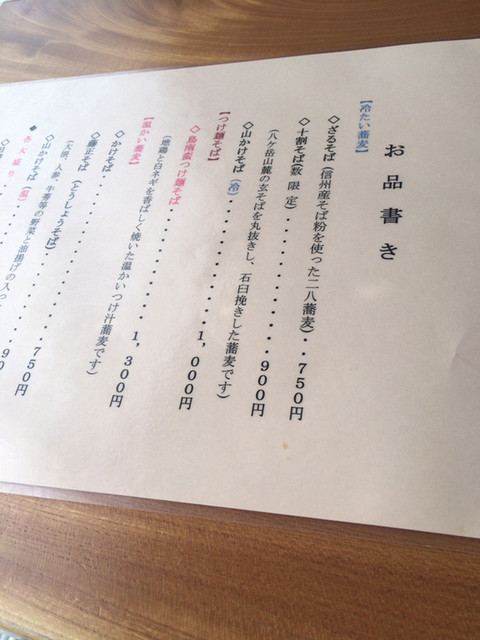 お品書き
【冷たい蕎麦】
◇ざるそば(信州産そば粉を使った二八蕎麦)・・750円
◇十割そば(数 限 定)・・・・・・・・・・900円
(八ケ岳山麓の玄そばを丸抜きし、石臼挽きした蕎麦です)
◇山かけそば(冷)・・・・・・・・・・1,000円
【つけ麺そば】
◇鳥南蛮つけ麺そば・・・・・・・・・・1,300円
(地鶏と白ネギを香ばしく焼いた温かいつけ汁蕎麦です)
【温かい蕎麦】
◇かけそば・・・・・・・・・・・・・・750円
◇藤正そば(とうしょうそば)・・・・・・90
(大根、人参、牛蒡等の野菜と油揚げの入っ
◇山かけそば(温)・・・
◆各大盛り